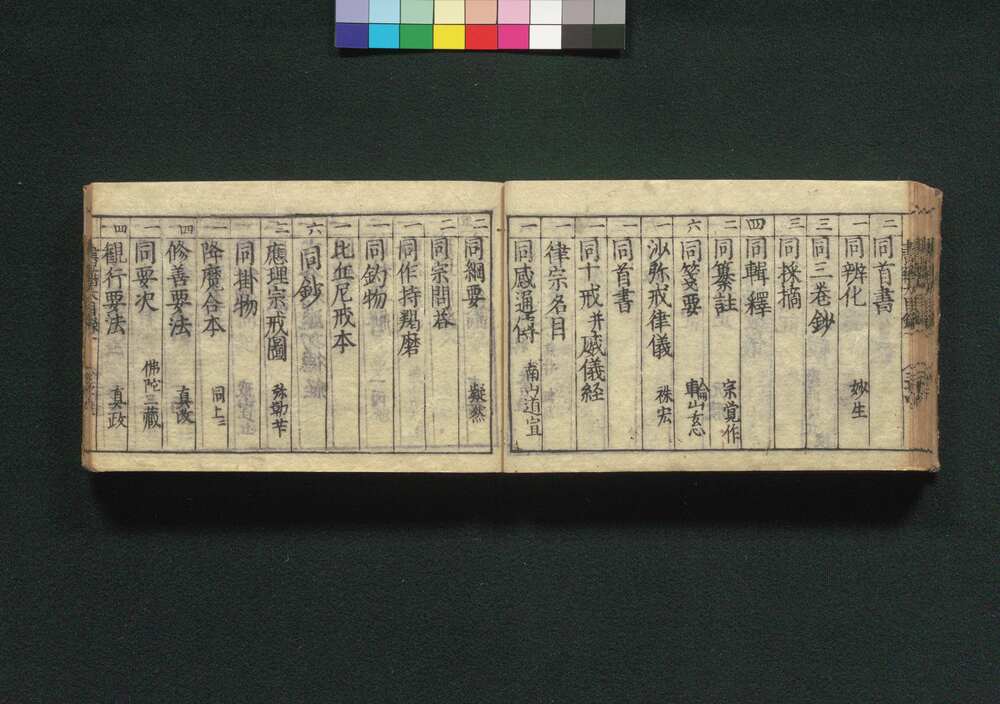 二 同首書
一 同辨化 妙生
三 同三巻鈔
三 同採摘
四 同輯釋
二 同纂註 宗覚作
六 同箋要
一 沙弥戒律儀 祩宏
同首書
一 同十戒并威儀経
一 律宗名目
一 同感通傳 南山道宣
二 同綱要 凝然
二 同宗問荅
一 同作持羯磨
一 同鈎物
一 比丘尼戒本
六 同鈔
二 應理宗戒圖 弥勒芉
同掛物
一 降魔合本 同上
四 修善要法 真政
一 同要次 佛陀三蔵
四 觀行要法 真政